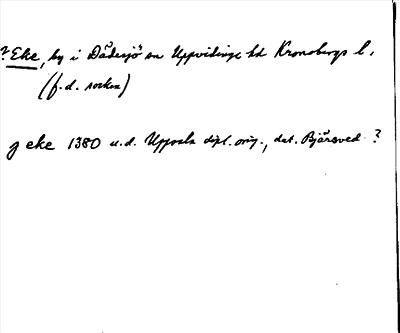 ? Eke, by i Dädesjö sn Uppvidinge hd Kronobergs l.
(f.d. socken)
j eke 1380 u.d. Uppsala dipl. orig., dat. Bjärsved ?